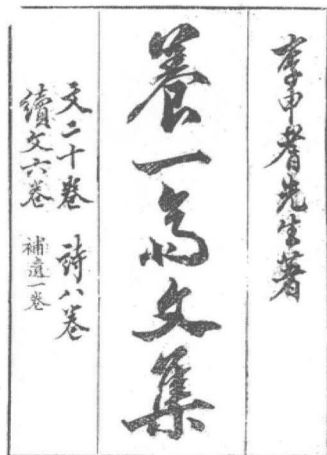 李申耆先生著
養一齋文集
天二十卷 詩八卷
續文六卷 補遺一卷